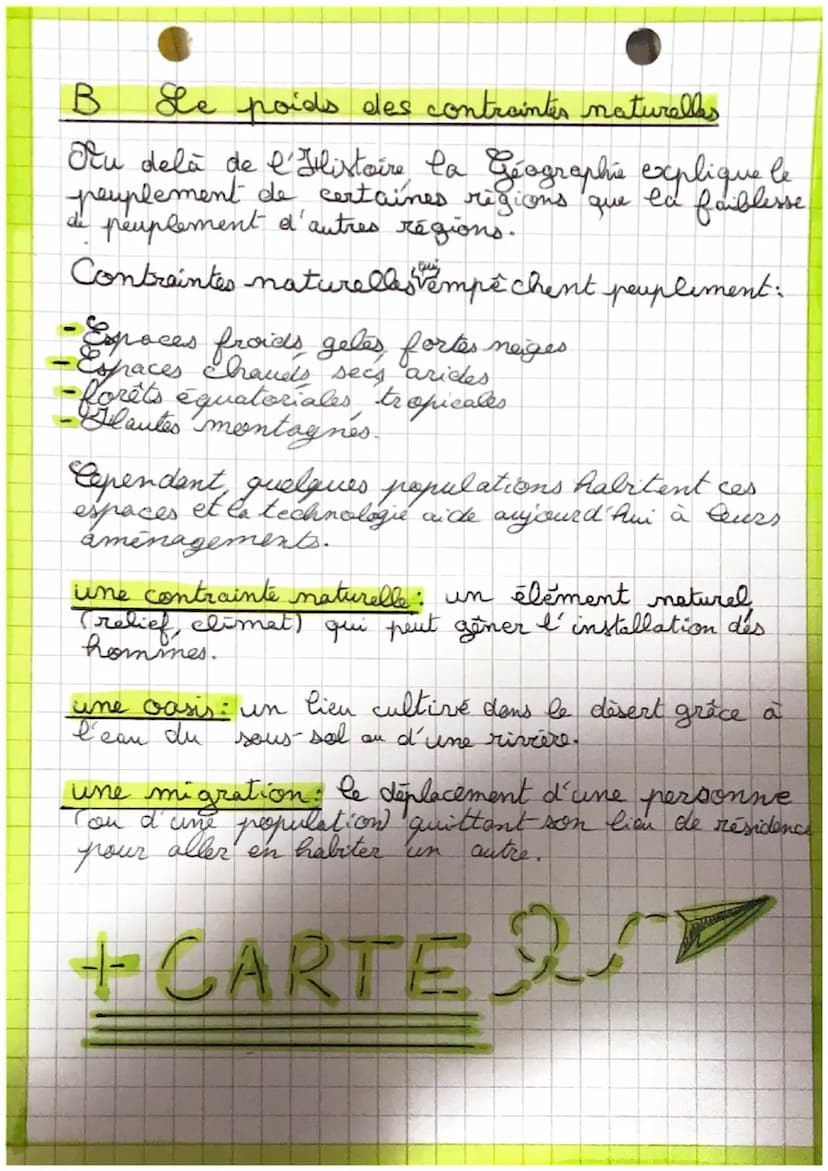 B Le poids des contraintes naturelles
Au delà de l'Histoire, la Géographie explique le
peuplement de certaines régions que la faiblesse
de peuplement d'autres régions.
Contraintes naturelles qui empêchent peuplement :
- Espaces froids, gelés, fortes neiges
- Espaces chauds, secs, arides
- forêts équatoriales, tropicales
- Hautes montagnes.
Cependant, quelques populations habitent ces
espaces et la technologie aide aujourd'hui à leurs
aménagements.
une contrainte naturelle : un élément naturel,
(relief, climat) qui peut gêner l'installation des
hommes.
une oasis : un lieu cultivé dans le désert grâce à
l'eau du sous-sol ou d'une rivière.
une migration : le déplacement d'une personne
(ou d'une population) quittant son lieu de résidence
pour aller en habiter un autre.
+ CARTE